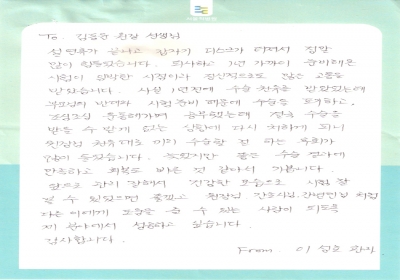 To. 김동윤 원장 선생님
설 연휴가 끝나고 갑자기 디스크가 터져서 정말
많이 힘들었습니다. 퇴사하고 1년 가까이 준비해온
시험이 임박한 시점이라 정신적으로도 많은 고통을
받았습니다. 사실 1년전에 수술 권유를 받았었는데
부모님의 반대와 시험 준비 때문에 수술을 포기하고,
조심조심 운동해가며 공부했었는데 결국 수술을
받을 수 밖에 없는 상황에 다시 처하게 되니
원장님 권유대로 미리 수술할 걸 하는 후회가
많이 들었습니다. 늦었지만 좋은 수술 결과에
만족하고 회복도 빠른 것 같아서 기쁩니다.
앞으로 관리 잘해서 건강한 모습으로 시험 잘
볼 수 있었으면 좋겠고 원장님, 간호사님, 간병인님 처럼
다른 이에게 도움을 줄 수 있는 사람이 되도록
제 분야에서 성공하고 싶습니다.
감사합니다.
From 이 성호 환자